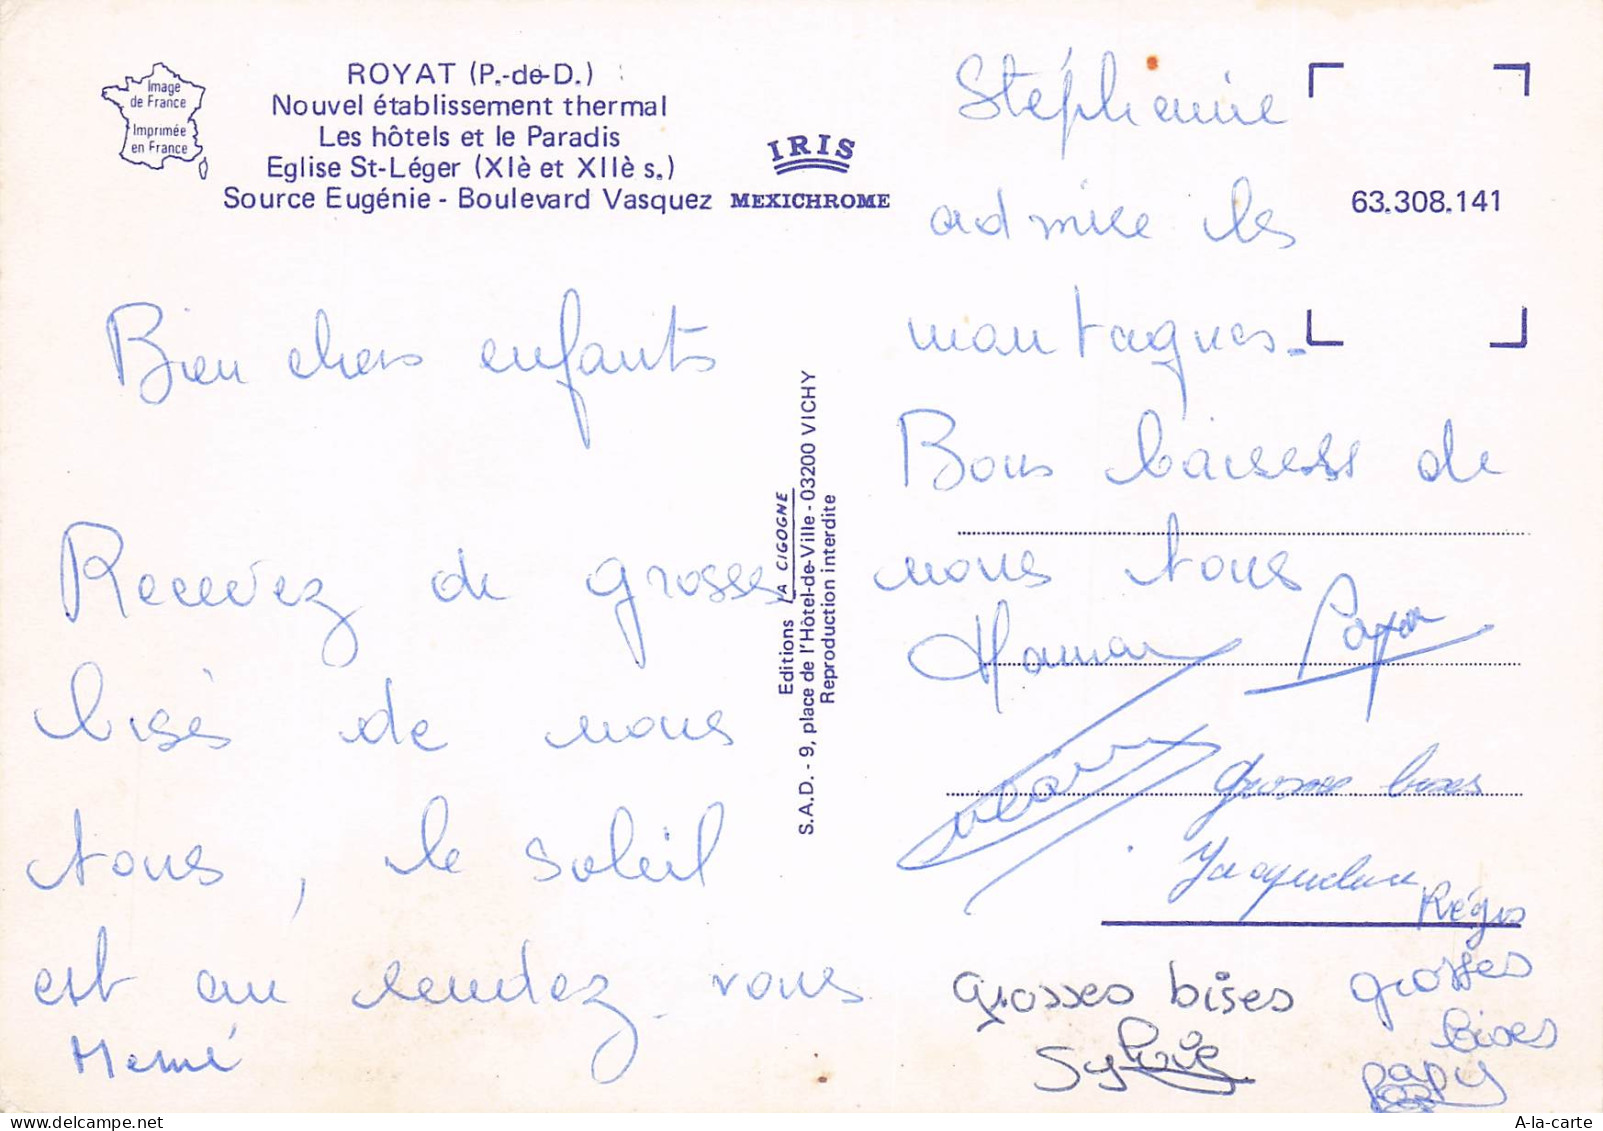 Image
de France
Imprimée
en France
ROYAT (P.-de-D.)
Nouvel établissement thermal
Les hôtels et le Paradis
Eglise St-Léger (XIè et XIIè s.)
Source Eugénie - Boulevard Vasquez
IRIS
MEXICHROME
63.308.141
Bien chers enfants
Recevez de grosses
bises de nous
tous, le soleil
est au rendez-vous
Memé
Editions LA CIGOGNE
S.A.D. - 9, place de l'Hôtel-de-Ville - 03200 VICHY
Reproduction interdite
Stéphanie
admire les
montagnes.
Bons baisers de
nous tous
Maman Papa
grosses bises
Jacqueline
Régis
grosses bises
Sylvie
grosses
bises
papy
A-la-carte